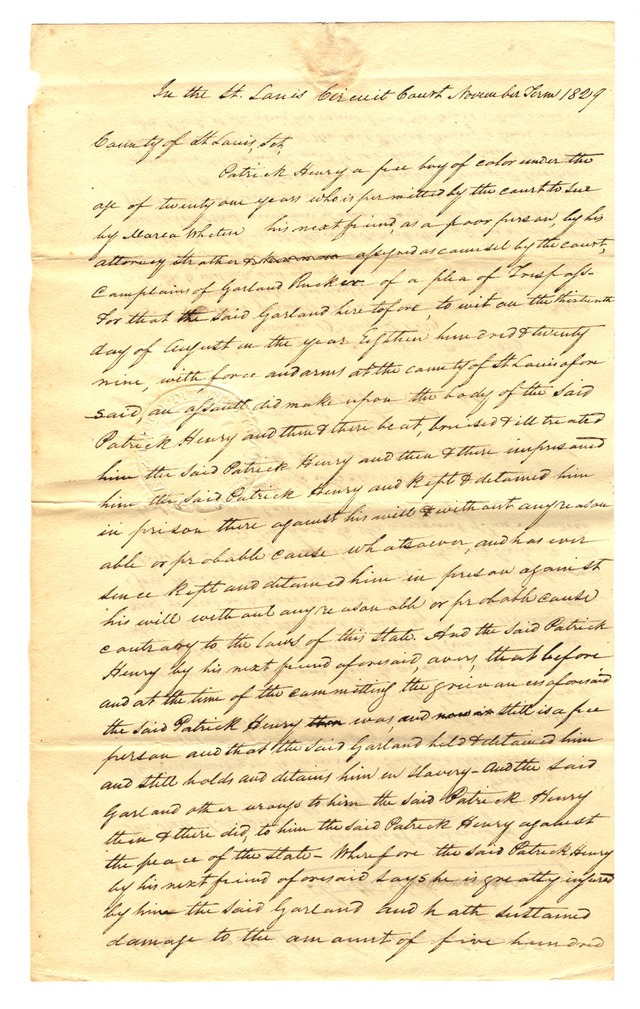 In the St. Louis Circuit Court November Term 1829
County of St Louis, Sct,
Patrick Henry a free boy of color under the
age of twenty one years who is permitted by the court to sue
by Marea Whiten his next friend as a poor person, by his
attorney Strother & assigned as counsel by the court,
Complains of Garland Rucker of a plea of Trespass-
For that the said Garland heretofore, to wit on the thirteenth
day of August in the year Eighteen hundred & twenty
nine, with force and arms at the county of St Louis afore
said, an assault did make upon the body of the said
Patrick Henry and then & there beat, bruised & ill treated
him the said Patrick Henry and then & there imprisoned
him the said Patrick Henry and kept & detained him
in prison there against his will & without any reason
able or probable cause whatsoever, and has ever
since kept and detained him in prison against
his will without any reasonable or probable cause
contrary to the laws of this state. And the said Patrick
Henry by his next friend aforesaid, avers, that before
and at the time of the committing the grievances aforesaid
the said Patrick Henry then was, and now is still is a free
person and that the said Garland held & detained him
and still holds and detains him in slavery - And the said
Garland other wrongs to him the said Patrick Henry
then & there did, to him the said Patrick Henry against
the peace of the state - Wherefore the said Patrick Henry
by his next friend aforesaid says he is greatly injured
by him the said Garland and hath sustained
damage to the amount of five hundred